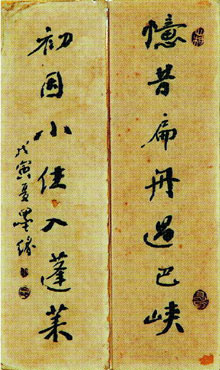 憶昔扁舟過巴峽
初因小住入蓬萊
戊寅夏墨